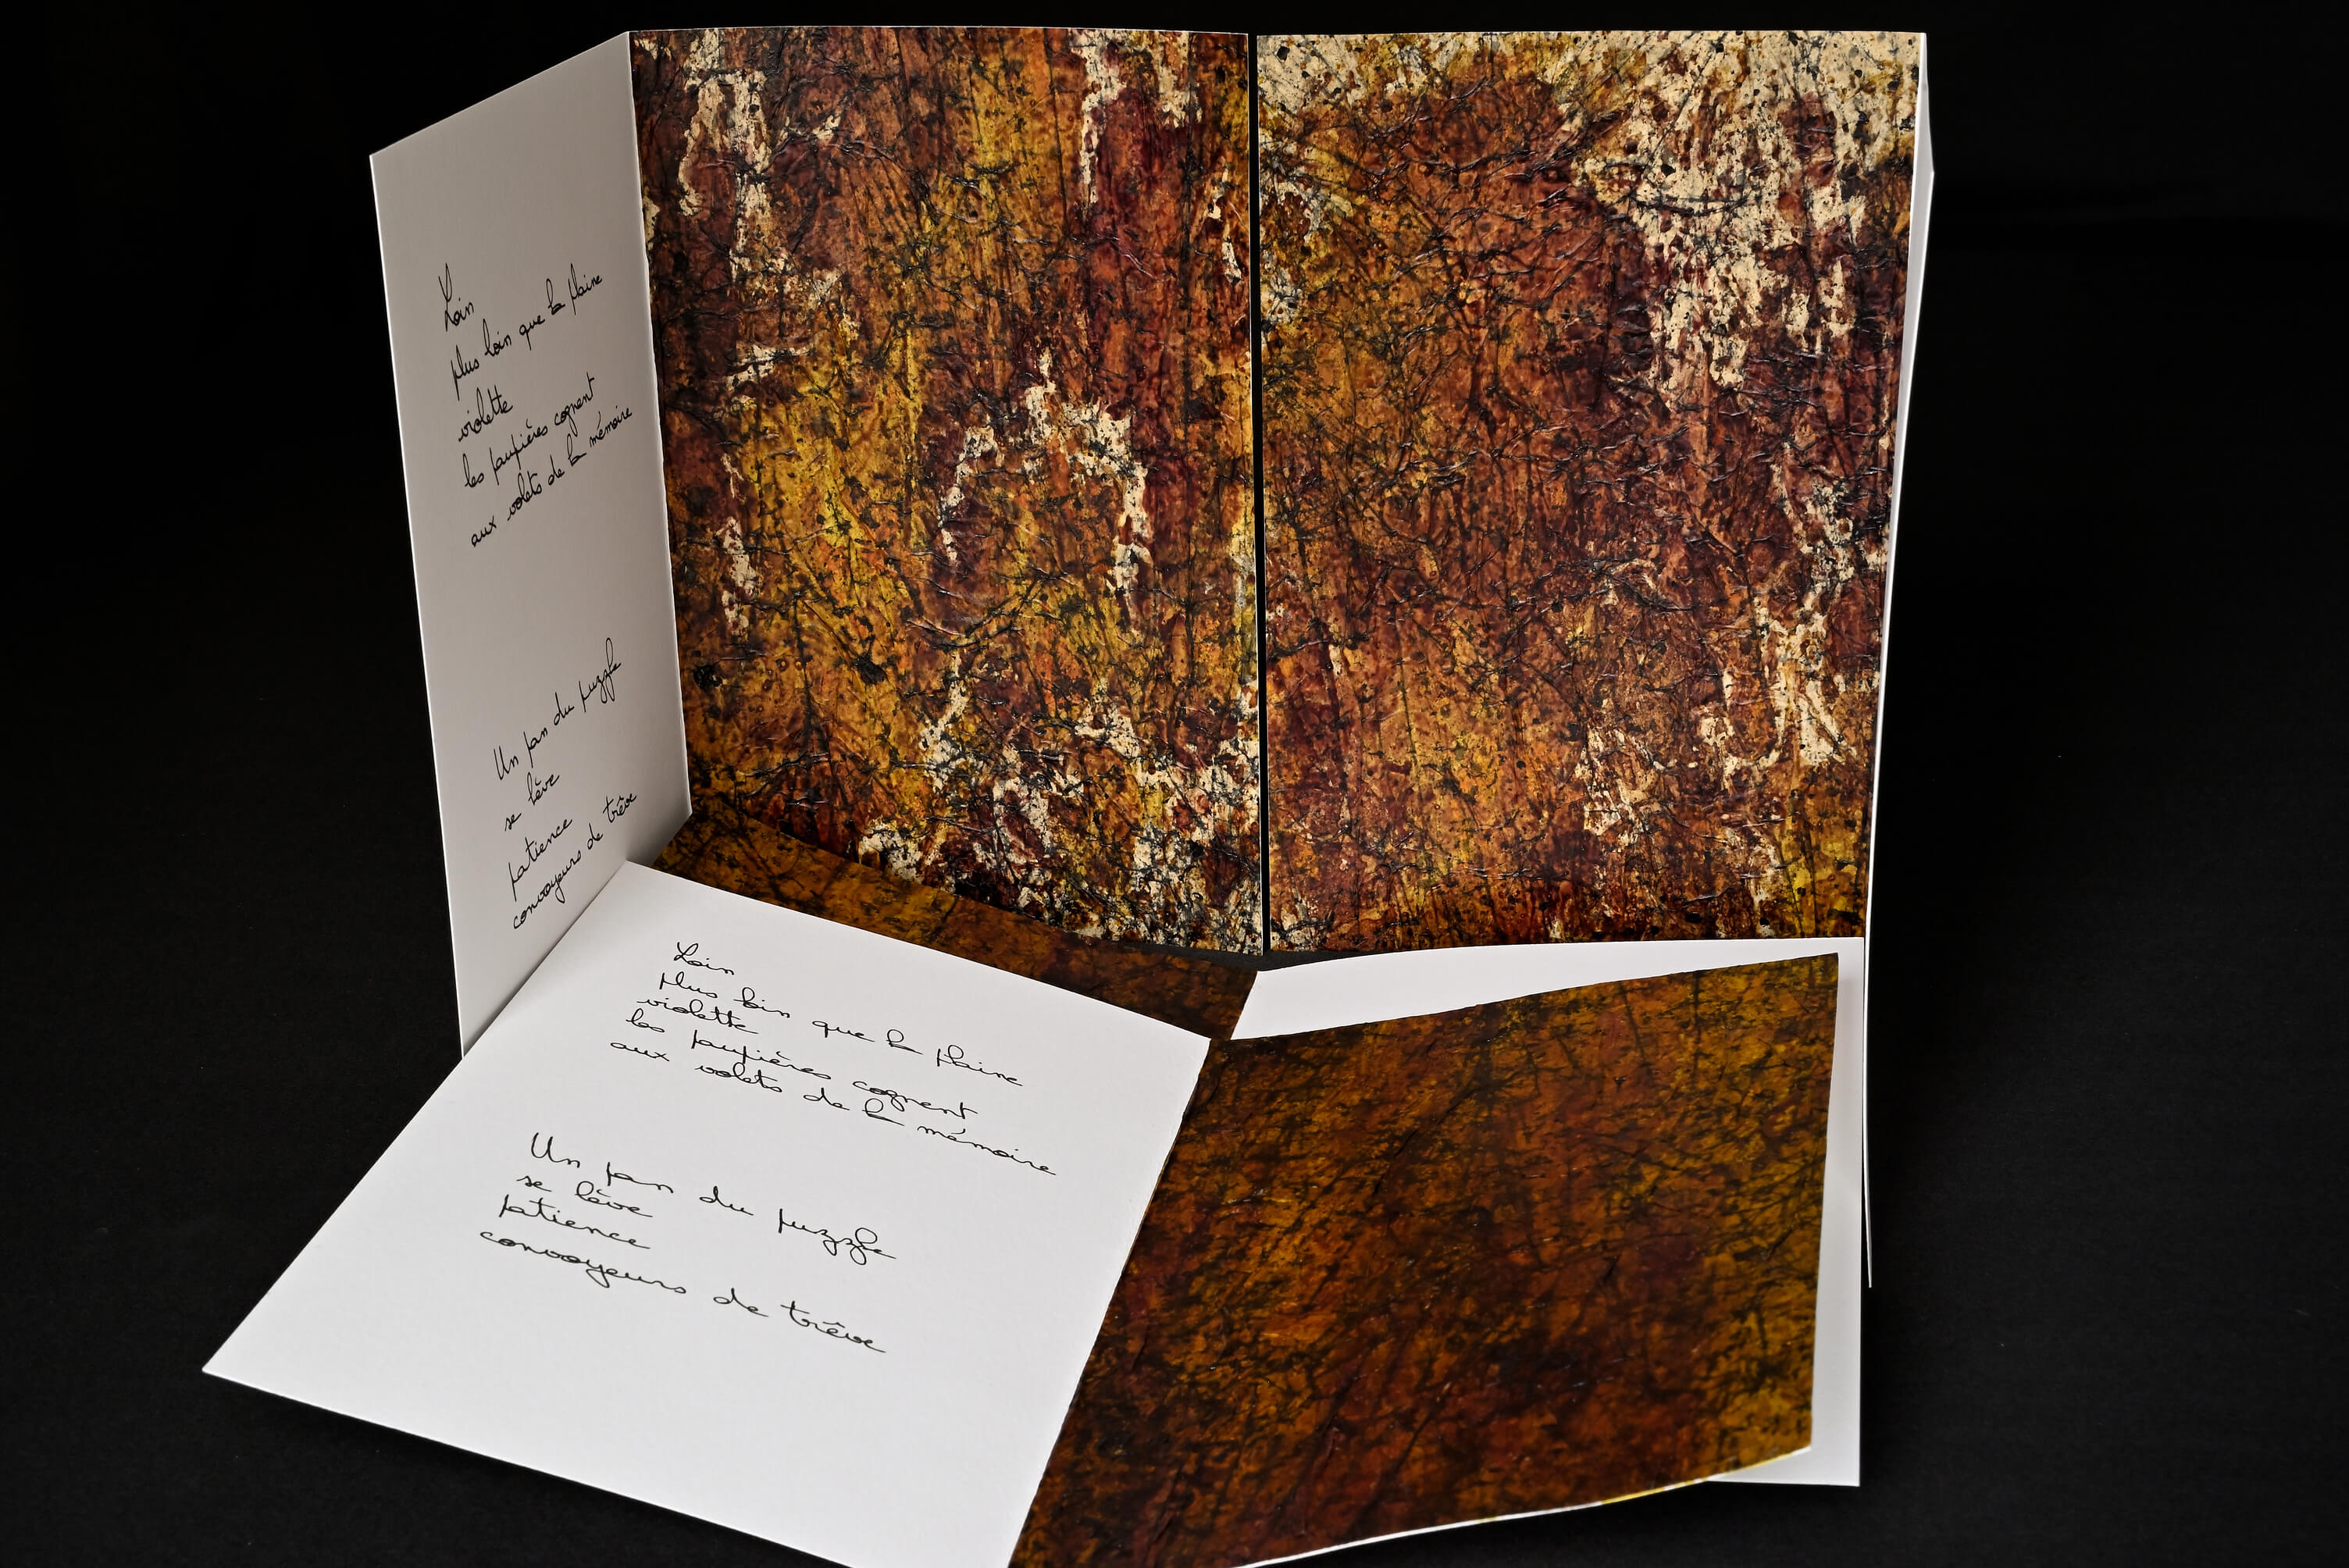 Loin
plus loin que la plaine
violette
les paupières cognent
aux volets de la mémoire
Un pan du puzzle
se lève
patience
convoyeurs de trêve
Loin
plus loin que la plaine
violette
les paupières cognent
aux volets de la mémoire
Un pan du puzzle
se lève
patience
convoyeurs de trêve